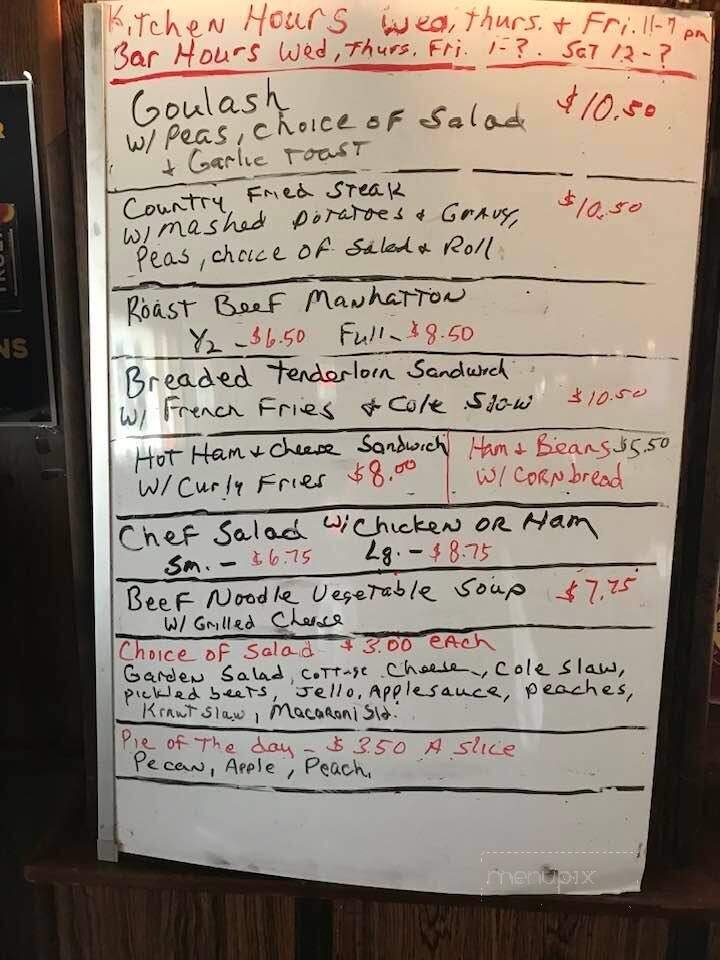 Kitchen Hours Wed, Thurs. + Fri. 11-7 pm
Bar Hours Wed, Thurs. Fri. 1-?. SAT 12-?
Goulash $10.50
w/ Peas, Choice of Salad
+ Garlic Toast
Country Fried Steak $10.50
w/ Mashed Potatoes + Gravy,
Peas, choice of Salad + Roll
Roast Beef Manhatton
1/2 - $6.50 Full - $8.50
Breaded Tenderloin Sandwich
w/ French Fries + Cole Slaw $10.50
Hot Ham + Cheese Sandwich
w/ Curly Fries $8.00
Ham + Beans $5.50
w/ Cornbread
Chef Salad w/ Chicken or Ham
Sm. - $6.75 Lg. - $8.75
Beef Noodle Vegetable Soup $7.75
w/ Grilled Cheese
Choice of Salad $3.00 each
Garden Salad, Cottage Cheese, Cole Slaw,
pickled beets, Jello, Applesauce, peaches,
Kraut Slaw, Macaroni Sld.
Pie of The day - $3.50 A Slice
Pecan, Apple, Peach,
menupix
NS